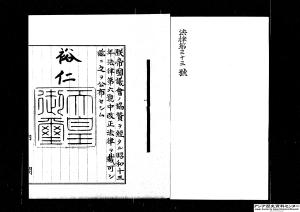 法律第三十三號
朕帝國議會ノ協賛ヲ經タル昭和十三
年法律第六號中改正法律ヲ裁可シ
茲ニ之ヲ公布セシム
裕仁
天皇
御璽
アジア歴史資料センター